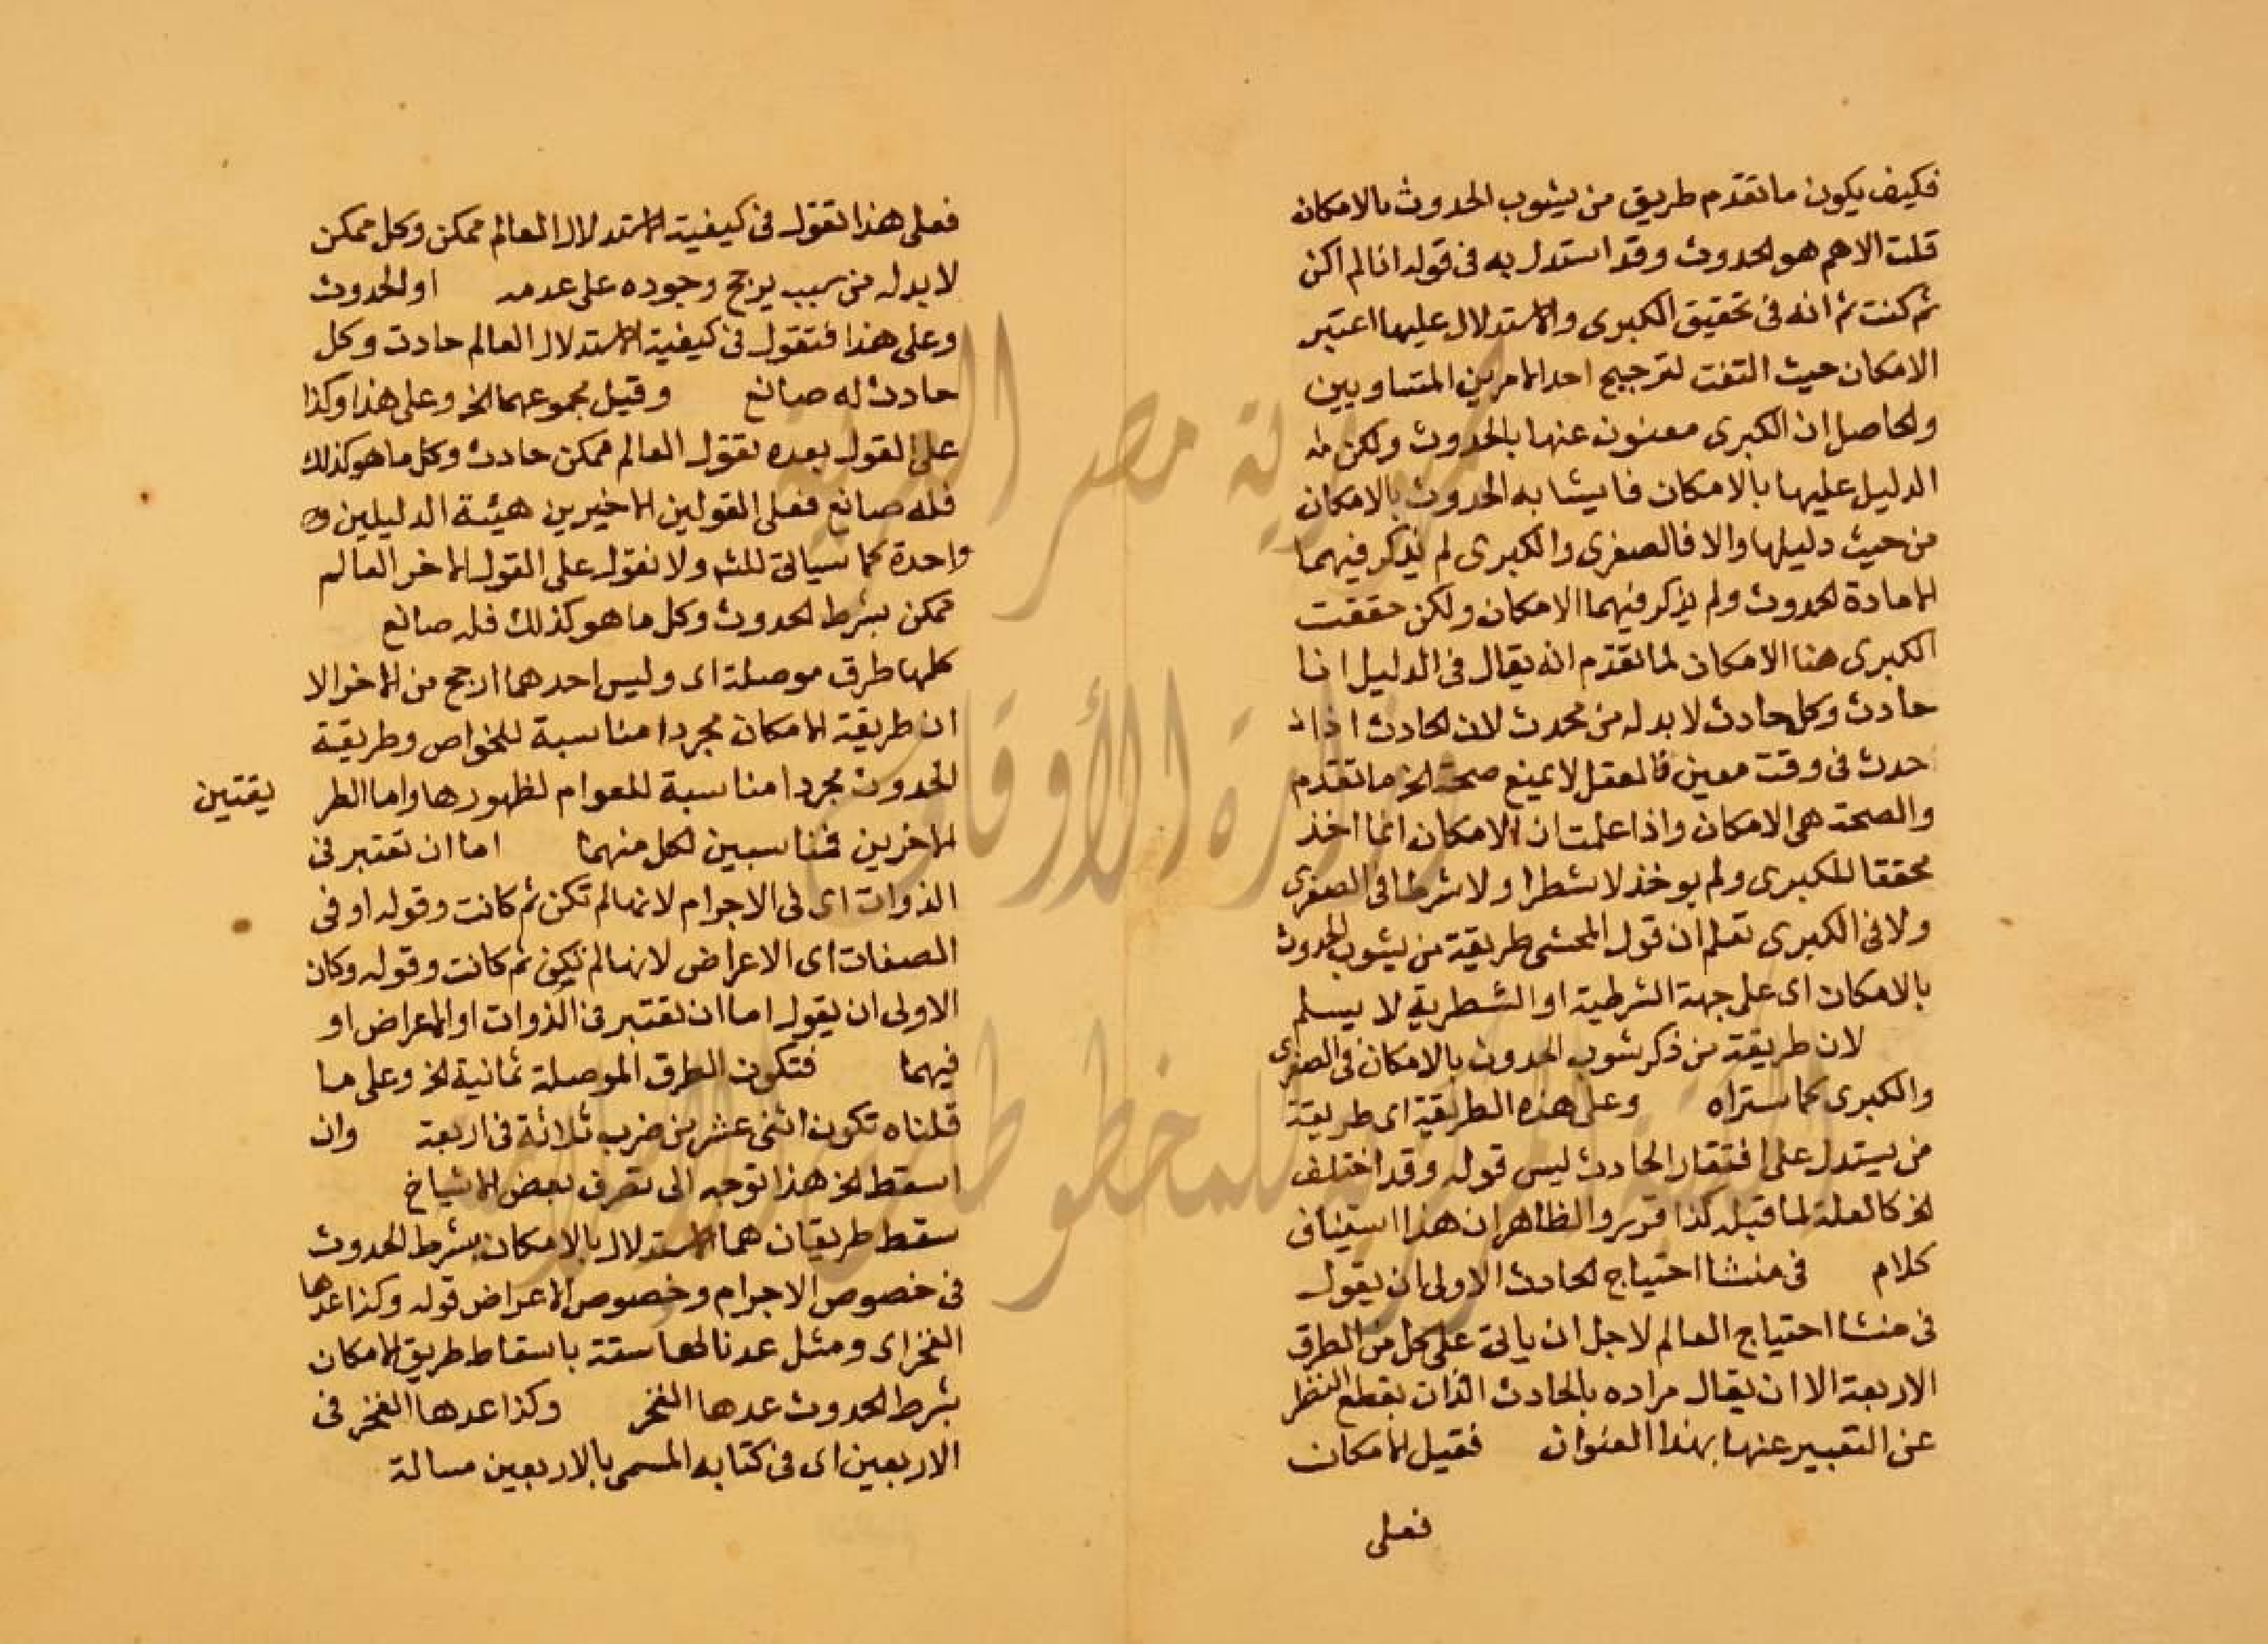 فكيف يكون ما تقدم طريق من يشوب الحدوث بالامكان
قلت الاهم هو الحدوث وقد استدل به فى قوله انا لم اكن
ثم كنت ثم انه فى تحقيق الكبرى والاستدلال عليها اعتبر
الامكان حيث التفت لترجيح احد الامرين المتساويين
والحاصل ان الكبرى معنون عنها بالحدوث ولكن
الدليل عليها بالامكان فما يشابه الحدوث بالامكان
من حيث دليلها والا فالصغرى والكبرى لم يذكر فيهما
الا مادة الحدوث ولم يذكر فيهما الامكان ولكن حققت
الكبرى هنا الامكان لما تقدم انه يقال فى الدليل انا
حادث وكل حادث لا بد له من محدث لان الحادث اذا
حدث فى وقت معين فالعقل لا يمنع صحة الخ ما تقدم
والصحة هى الامكان واذا علمت ان الامكان انما اخذ
محققا للكبرى ولم يوخذ لا شطرا ولا شرطا فى الصغرى
ولا فى الكبرى تعلم ان قول المحشى طريقة من يشوب الحدوث
بالامكان اى على جهة الشرطية او الشطرية لا يسلم
لان طريقة من ذكر يشوب الحدوث بالامكان فى الصغرى
والكبرى كما ستراه وعلى هذه الطريقة اى طريقة
من يستدل على افتقار الحادث ليس قوله وقد اختلف
الخ كالعلة لما قبله كذا قرر والظاهر ان هذا استيناف
كلام فى منشا احتياج الحادث الاولى ان يقول
فى منشا احتياج العالم لاجل ان ياتى على كل من الطرق
الاربعة الا ان يقال مراده بالحادث الذات بقطع النظر
عن التعبير عنها بهذا العنوان فقيل الامكان
فعلى
فعلى هذا تقول فى كيفية الاستدلال العالم ممكن وكل ممكن
لا بد له من سبب يرجح وجوده على عدمه او الحدوث
وعلى هذا فتقول فى كيفية الاستدلال العالم حادث وكل
حادث له صانع وقيل مجموعهما الخ وعلى هذا وكذا
على القول بعده تقول العالم ممكن حادث وكل ما هو كذلك
فله صانع فعلى القولين الاخيرين هيئة الدليلين
واحدة كما سياتى للشه ولا نقول على القول الاخر العالم
ممكن بشرط الحدوث وكل ما هو كذلك فله صانع
كلها طرق موصلة اى وليس احدهما ارجح من الاخر الا
ان طريقة الامكان مجردا مناسبة للخواص وطريقة
الحدوث مجردا مناسبة للعوام لظهورها واما الطر يقتين
الاخرين فمناسبين لكل منهما اما ان تعتبر فى
الذوات اى فى الاجرام لانها لم تكن ثم كانت وقوله او فى
الصفات اى الاعراض لانها لم تكن ثم كانت وقوله وكان
الاولى ان يقول اما ان تعتبر فى الذوات او الاعراض او
فيهما فتكون الطرق الموصلة ثمانية الخ وعلى ما
قلناه تكون اثنى عشر من ضرب ثلاثة فى اربعة وان
اسقط الخ هذا توجه الى تعرف بعض الاشياخ
سقط طريقان هما الاستدلال بالامكان بشرط الحدوث
فى خصوص الاجرام وخصوص الاعراض قوله وكذا عدها
الفخر اى ومثل عدنا لها ستة باسقاط طريق الامكان
بشرط الحدوث عدها الفخر وكذا عدها الفخر فى
الاربعين اى فى كتابه المسمى بالاربعين مسالة